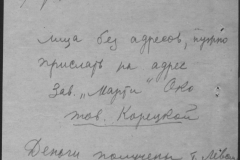 лица без адресов, нужно
прислать на адрес
Зав. „Марти" Око
тов. Корецкой
Деньги получены т. Лёва